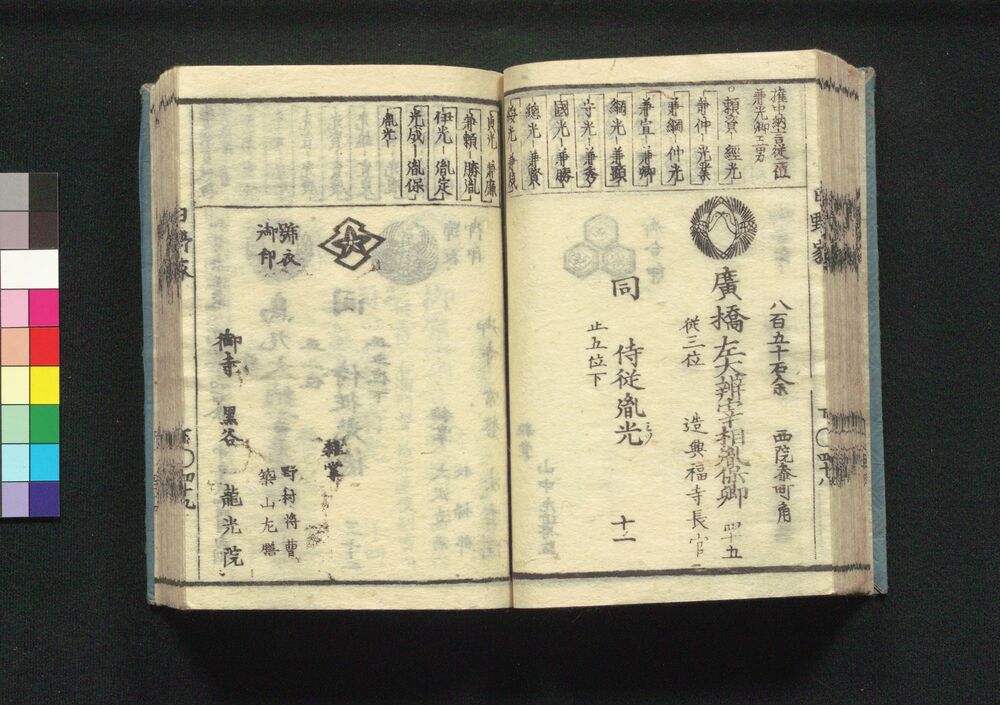 権中納言従一位
兼光卿五男
頼資―經光
兼仲―光業
兼綱 仲光
兼宣―兼郷
綱光―兼顯
守光―兼秀
國光―兼勝
總光―兼賢
綏光 兼茂
貞光 兼廉
兼頼 勝胤
伊光―胤定
光成―胤保
胤光―
日野家
八百五十石余 西院参町角
廣橋左大辨宰相胤保卿 四十五
従三位 造興福寺長官
下〇四十八
同 侍従胤光 十二
正五位下
號衣
御印
雜掌
野村将曹
築山左膳
御寺 黒谷 龍光院
日野家
下〇四十九